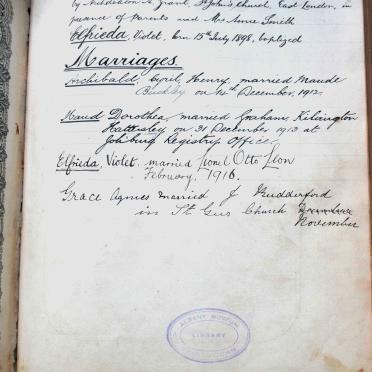 by Archdeacon Grant, St John's Church East London, in
presence of Parents and Mrs Annie Smith
Elfrieda, Violet, born 15th July 1898, baptized
Marriages.
Archibald, Cyril, Henry, married Maude
on 14th December, 1912.
Maud Dorothea, married Graham, Kilvington
Hattersley on 31 December 1913 at
Joh'burg Registry Office
Elfrieda, Violet, married Lionel Otto
February, 1916.
Grace Agnes married J Rudderford
in St Gus Church
November
ALBANY MUSEUM
LIBRARY